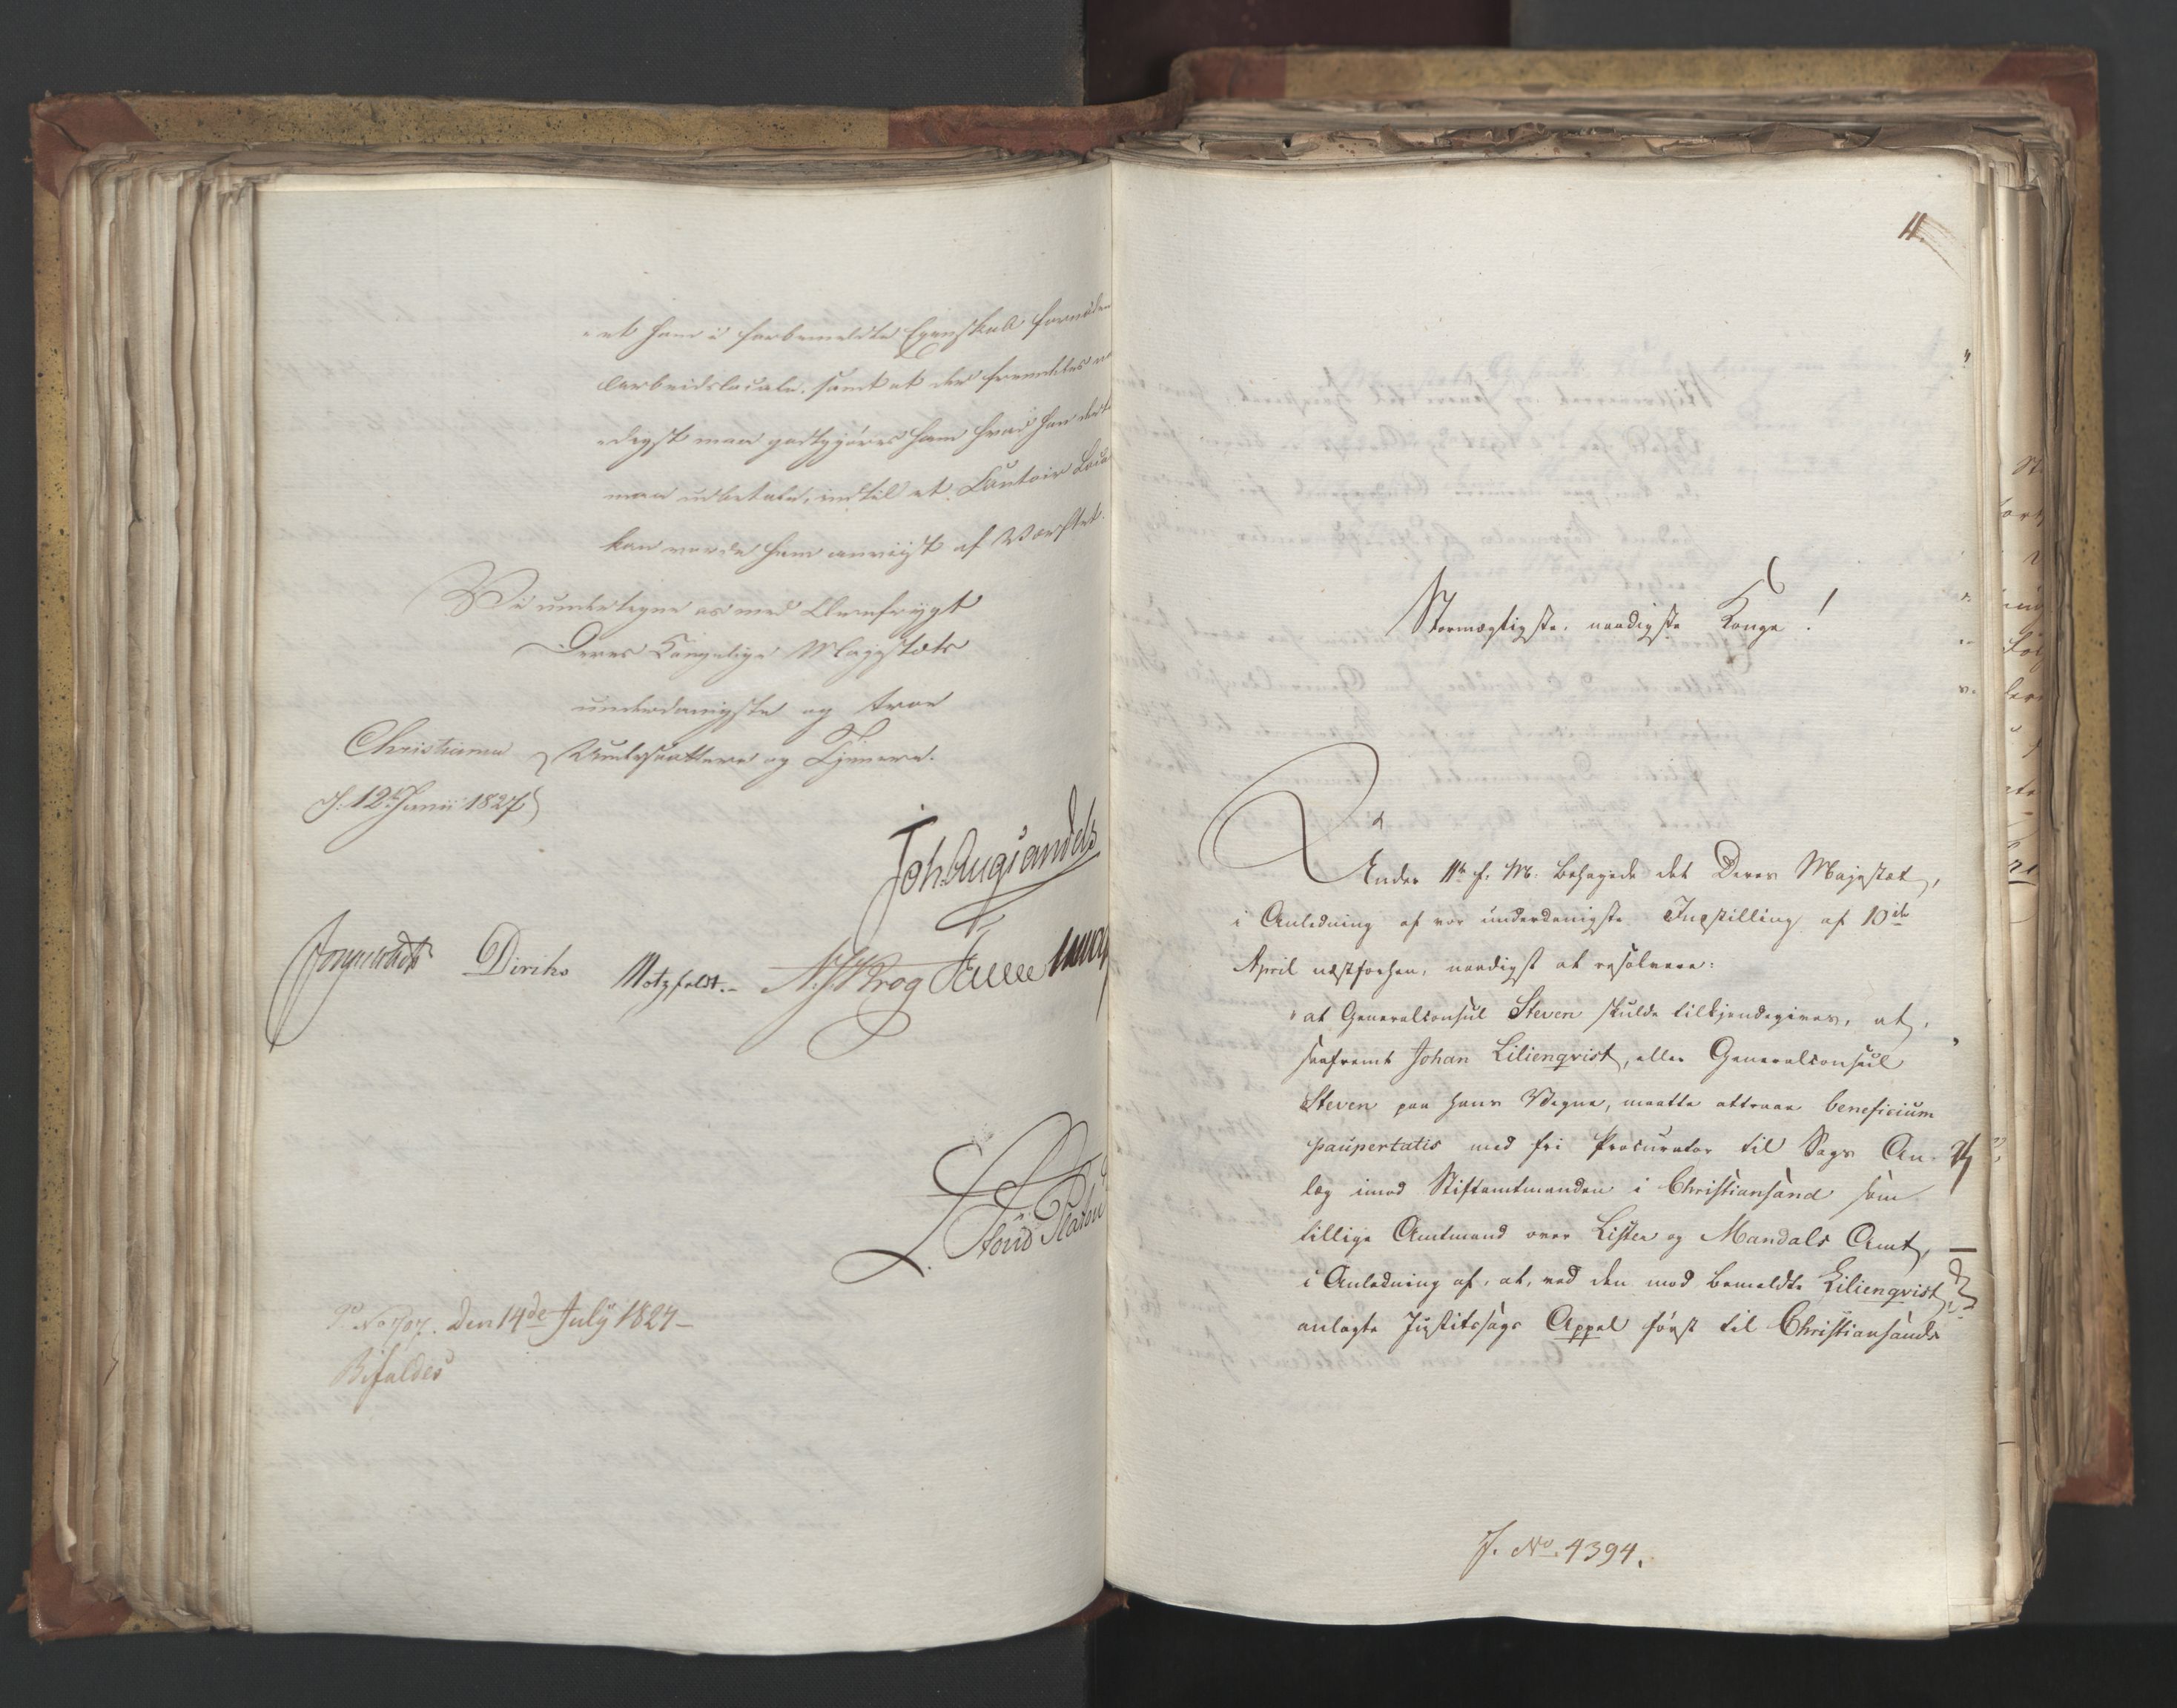 et ham i forbemeldte Egenskab
Arbeidslocale, samt at der fremdeles
digst maa godtgjøres ham hvad han
maa udbetale, indtil et Contoir Local
kan vorde ham anviist af Værftet.
Vi undertegne os med Ærefrygt
Deres Kongelige Majestæts
underdanigste og troe
Christiania Undersaatter og Tjenere.
d: 12te Junii 1827
Joh. Aug. Sandels
Diriks Motzfeldt. Krog
No 707. Den 14de July 1827
Bifaldes
11.
Stormægtigste, naadigste Konge!
Under 11te f. M. behagede det Deres Majestæt,
i Anledning af vor underdanigste Indstilling af 10de
April næstforhen, naadigst at resolvere:
"at Generalconsul Steven skulde tilkjendegives, at,
saafremt Johan Lilienqvist, eller Generalconsul
Steven paa hans Vegne, maatte attraae beneficium
paupertatis med fri Procurator til Sags An-
læg imod Stiftamtmanden i Christiansand som
tillige Amtmand over Lister og Mandals Amt,
i Anledning af, at, ved den mod bemeldte Lilienqvist
anlagte Justitssags Appel først til Christiansands
J. No. 4394.